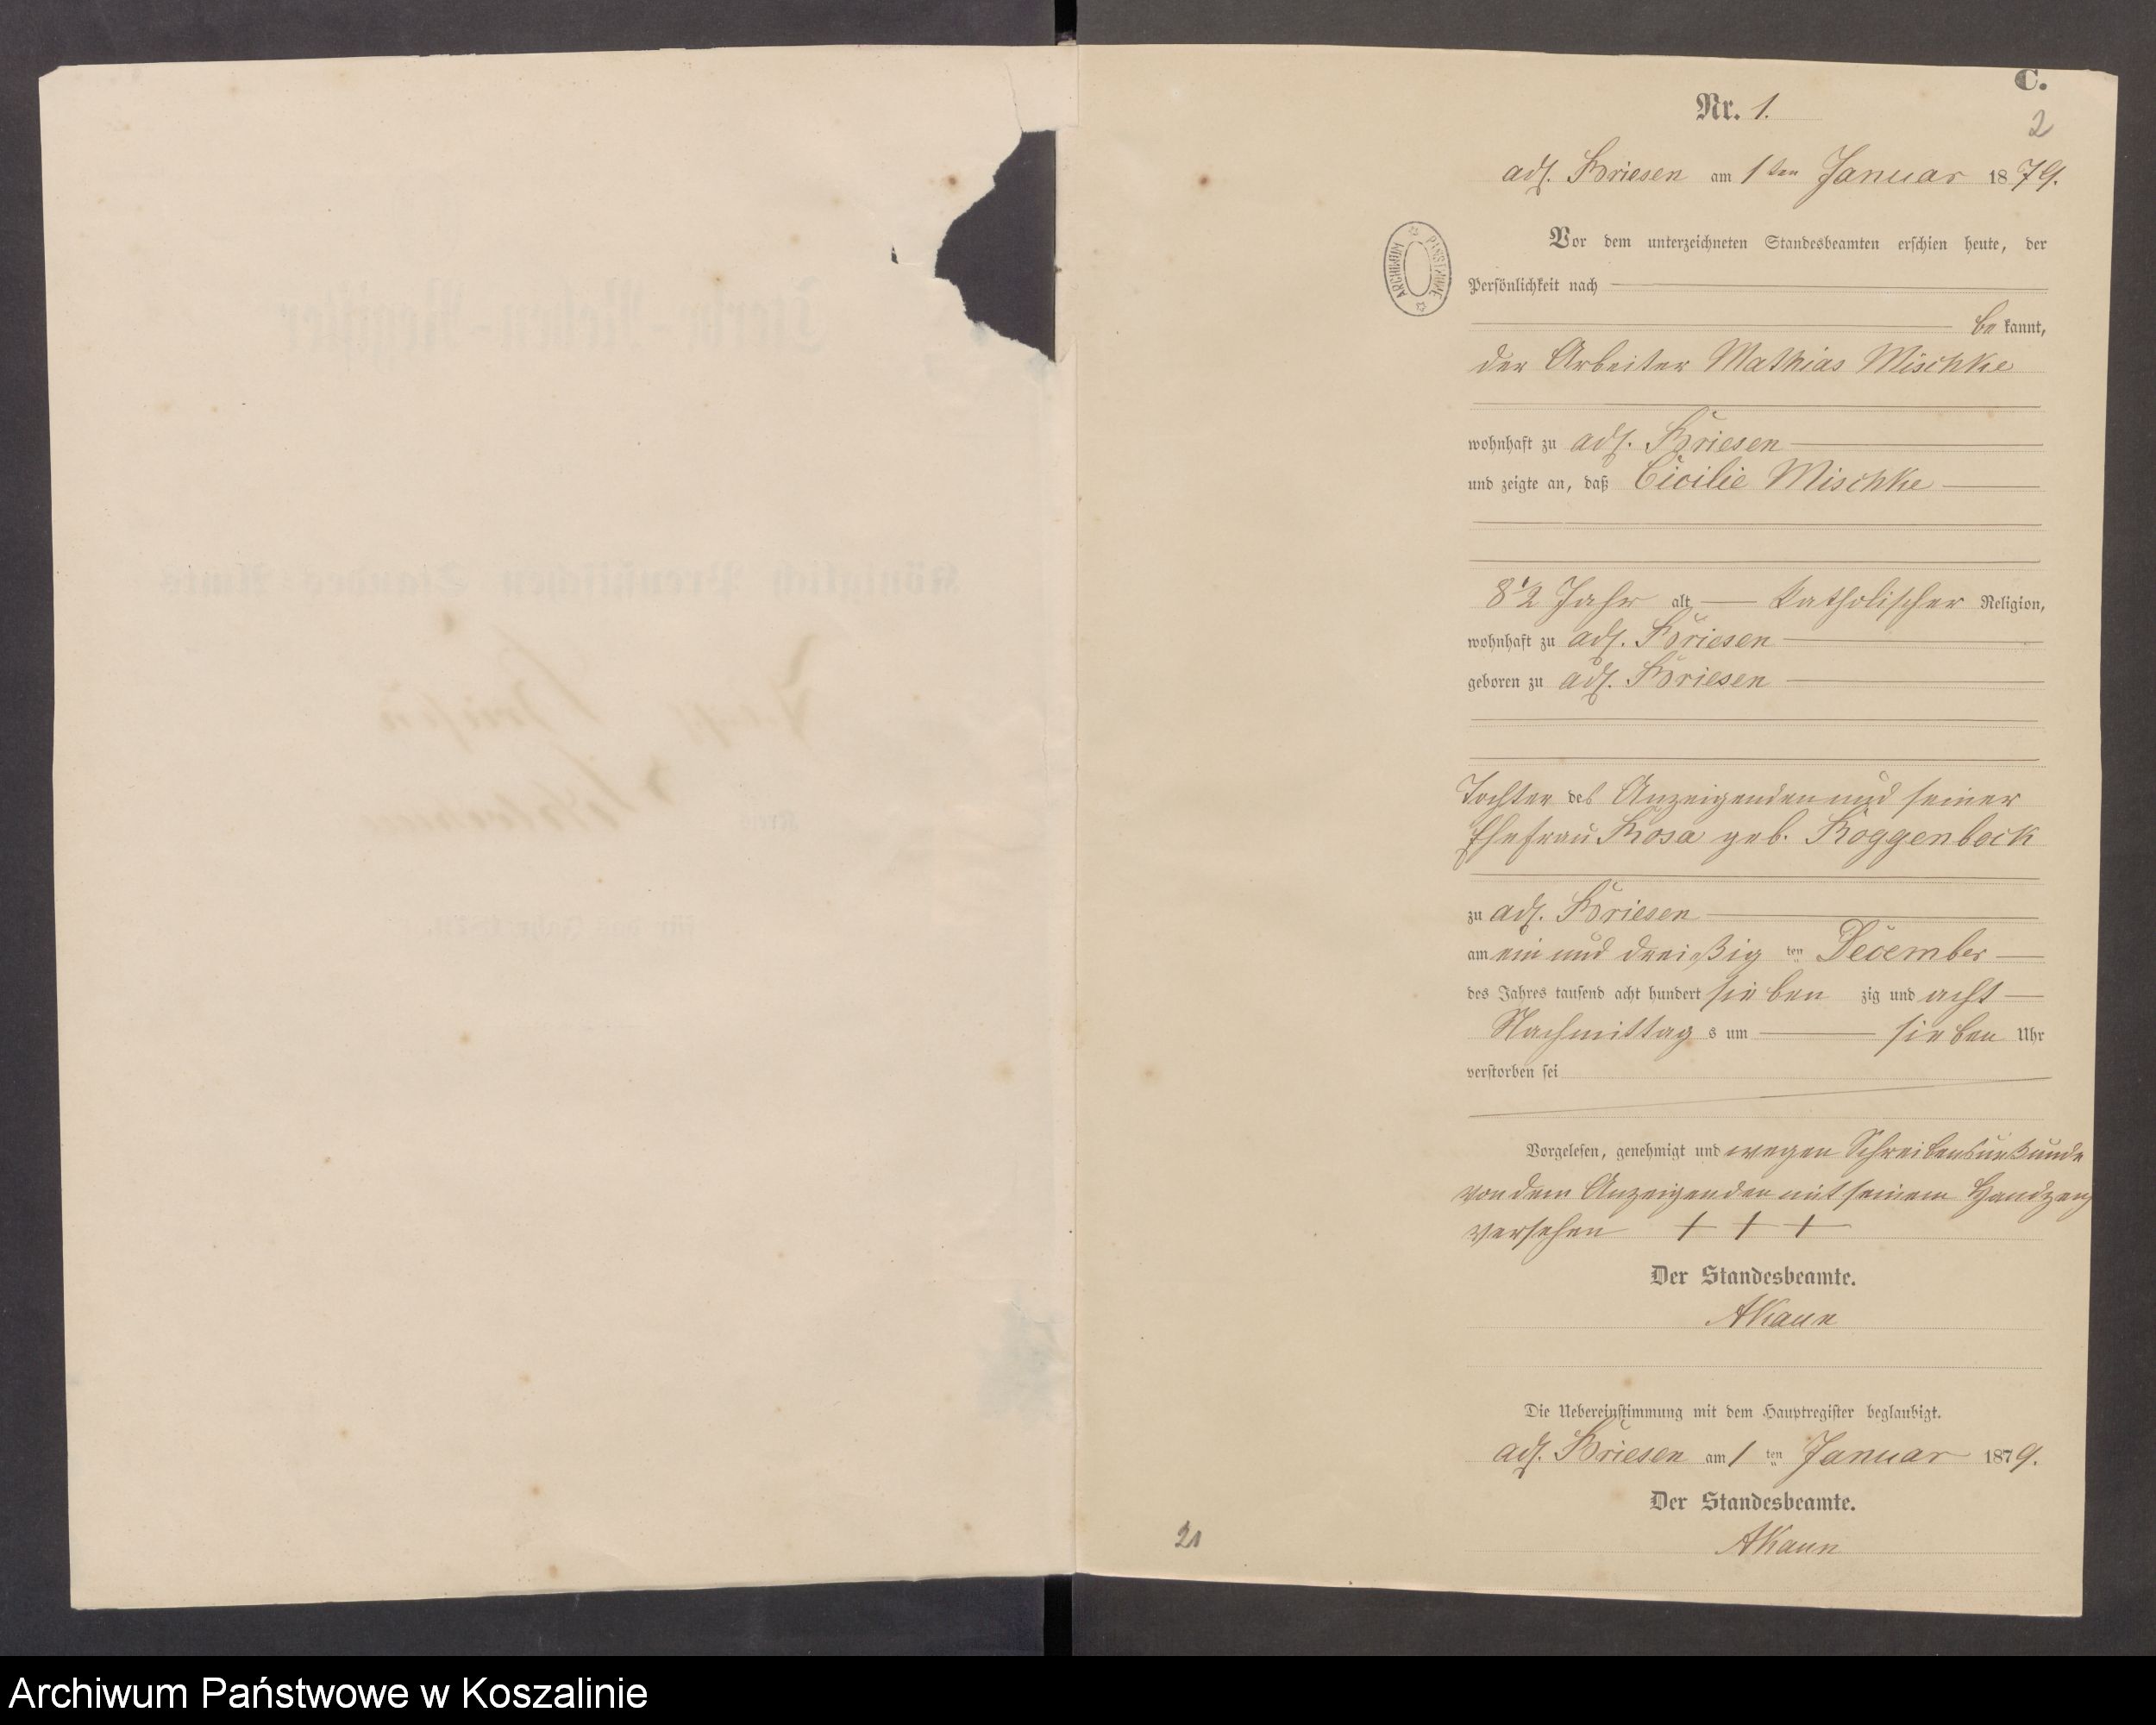 C.
Nr. 1.
2
adl. Briesen am 1ten Januar 1879.
Vor dem unterzeichneten Standesbeamten erschien heute, der
Persönlichkeit nach
bekannt,
der Arbeiter Mathias Mischke
wohnhaft zu adl. Briesen
und zeigte an, daß Cicilie Mischke
8 1/2 Jahr alt, katholischer Religion,
wohnhaft zu adl. Briesen
geboren zu adl. Briesen
Tochter des Anzeigenden und seiner
Ehefrau Rosa geb. Roggenbock
zu adl. Briesen
am ein und dreißig ten December
des Jahres tausend acht hundert siebenzig und acht
Nachmittags um sieben Uhr
verstorben sei
Vorgelesen, genehmigt und wegen Schreibensunkunde
von dem Anzeigenden mit seinem Handzeng
versehen + + +
Der Standesbeamte.
AKaun
Die Uebereinstimmung mit dem Hauptregister beglaubigt.
adl. Briesen am 1 ten Januar 1879.
Der Standesbeamte.
AKaun
21
ARCHIWUM PAŃSTWOWE
Archiwum Państwowe w Koszalinie